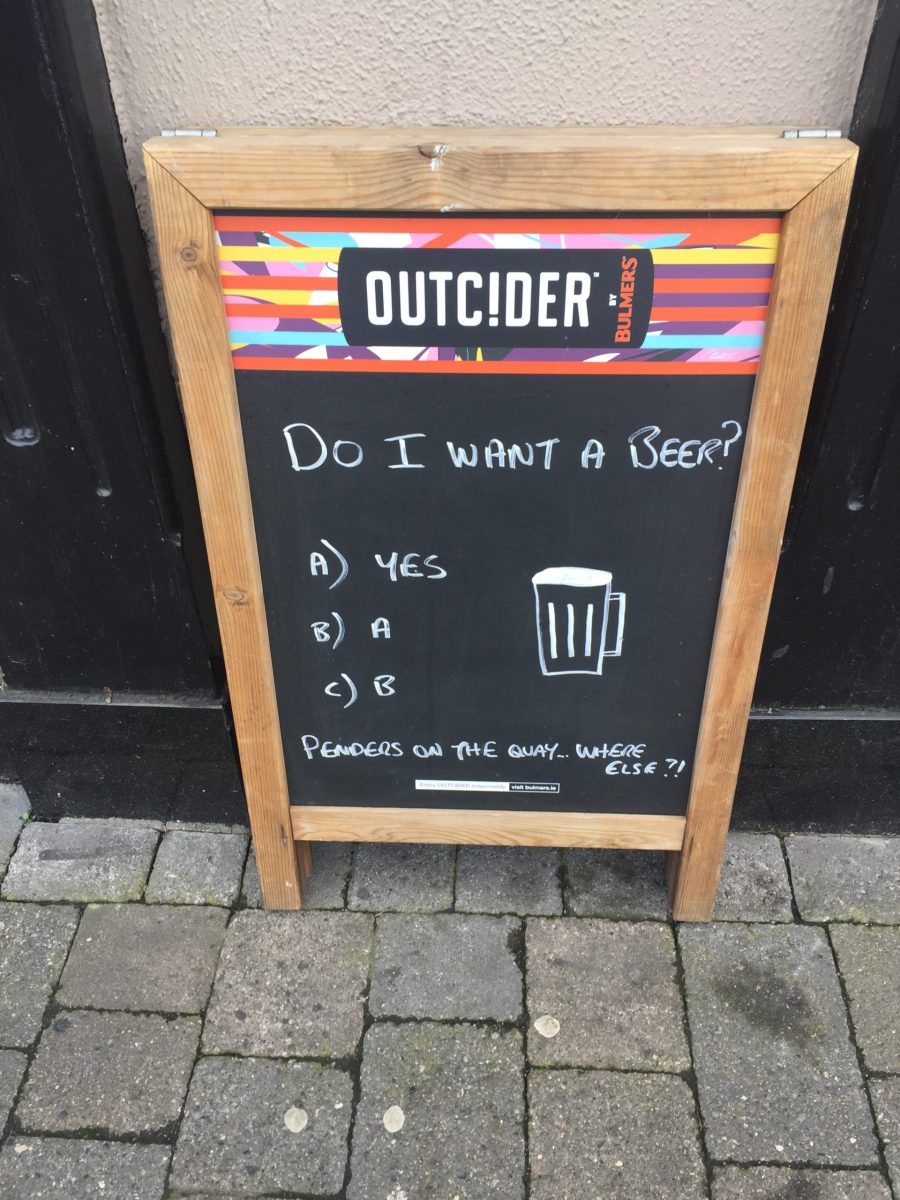 OUTC!DER™ BY BULMERS
DO I WANT A BEER?
A) YES
B) A
C) B
PENDERS ON THE QUAY... WHERE
ELSE?!
Enjoy OUTCIDER responsibly visit bulmers.ie